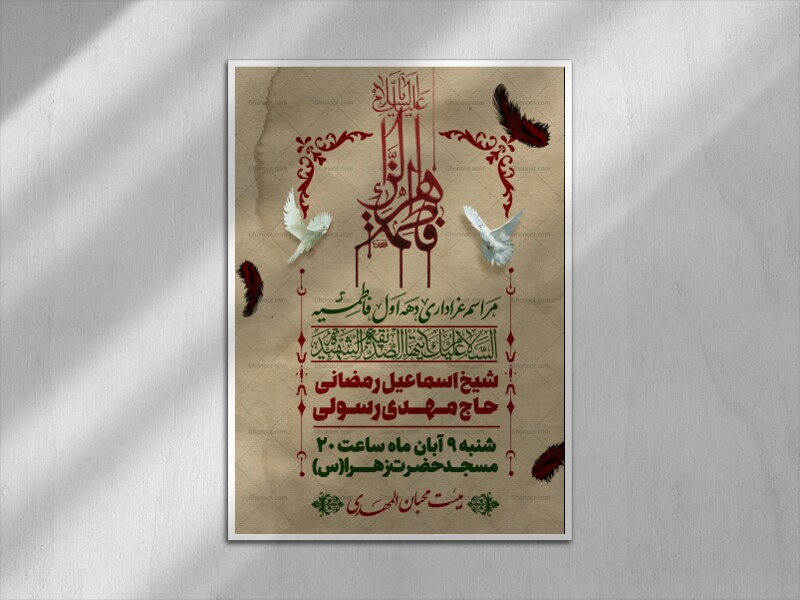 علیها السلام
فاطمة الزهراء
مراسم عزاداری دهه اول فاطمیه
السلام علیک ایتها الصدیقة الشهیدة
شیخ اسماعیل رمضانی
حاج مهدی رسولی
شنبه ۹ آبان ماه ساعت ۲۰
مسجد حضرت زهرا(س)
هیئت محبان المهدی